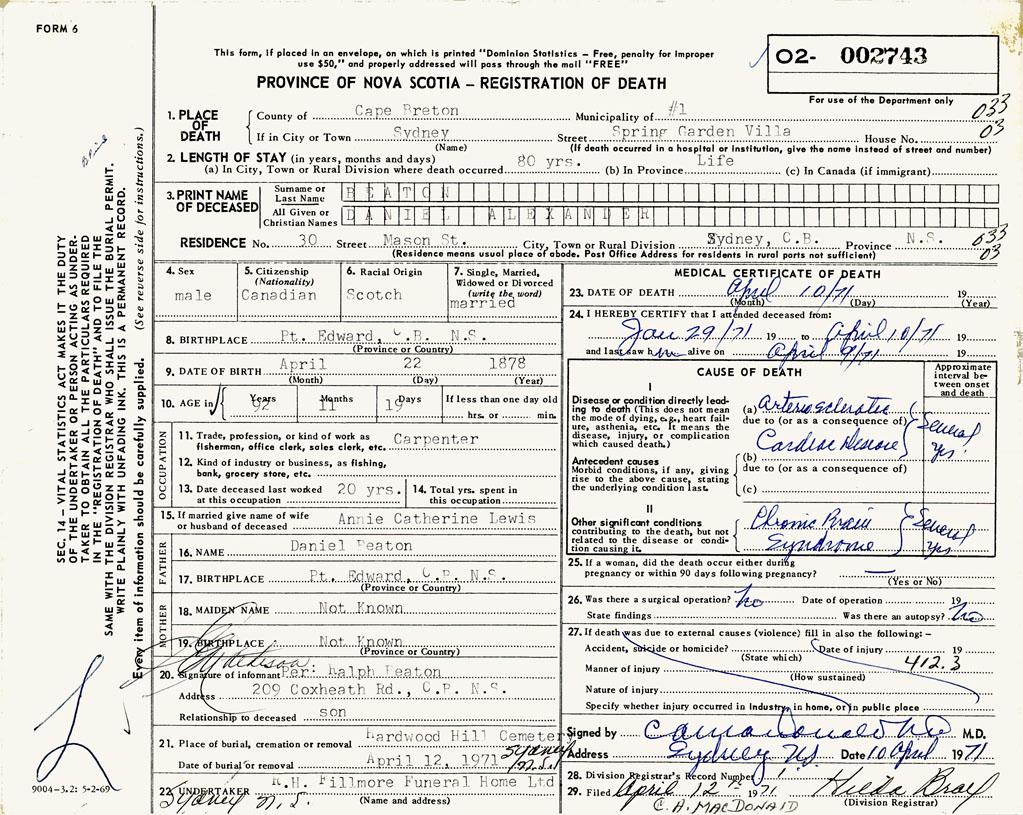 FORM 6
This form, if placed in an envelope, on which is printed "Dominion Statistics – Free, penalty for improper
use $50," and properly addressed will pass through the mail "FREE"
PROVINCE OF NOVA SCOTIA – REGISTRATION OF DEATH
O2- 002743
For use of the Department only
033
03
1. PLACE OF DEATH
County of Cape Breton Municipality of #1
If in City or Town Sydney Street Spring Garden Villa House No.
(Name) (If death occurred in a hospital or institution, give the name instead of street and number)
2. LENGTH OF STAY (in years, months and days)
(a) In City, Town or Rural Division where death occurred 80 yrs. (b) In Province Life (c) In Canada (if immigrant)
3. PRINT NAME OF DECEASED
Surname or Last Name BEATON
All Given or Christian Names DANIEL ALEXANDER
RESIDENCE No. 30 Street Mason St. City, Town or Rural Division Sydney, C.B. Province N.S. 033
03
(Residence means usual place of abode. Post Office Address for residents in rural parts not sufficient)
4. Sex
male
5. Citizenship
(Nationality)
Canadian
6. Racial Origin
Scotch
7. Single, Married,
Widowed or Divorced
(write the word)
married
8. BIRTHPLACE Pt. Edward, C.B. N.S.
(Province or Country)
9. DATE OF BIRTH April 22 1878
(Month) (Day) (Year)
10. AGE in Years Months Days If less than one day old
92 11 19 hrs. or min.
OCCUPATION
11. Trade, profession, or kind of work as Carpenter
fisherman, office clerk, sales clerk, etc.
12. Kind of industry or business, as fishing,
bank, grocery store, etc.
13. Date deceased last worked 20 yrs.
at this occupation
14. Total yrs. spent in
this occupation
15. If married give name of wife
or husband of deceased Annie Catherine Lewis
FATHER
16. NAME Daniel Beaton
17. BIRTHPLACE Pt. Edward, C.B. N.S.
(Province or Country)
MOTHER
18. MAIDEN NAME Not Known
19. BIRTHPLACE Not Known
(Province or Country)
20. Signature of informant Per: Ralph Beaton
Address 209 Coxheath Rd., C.B. N.S.
Relationship to deceased son
21. Place of burial, cremation or removal Hardwood Hill Cemetery
Sydney N.S.
Date of burial or removal April 12, 1971
22. UNDERTAKER R.H. Fillmore Funeral Home Ltd
Sydney N.S. (Name and address)
MEDICAL CERTIFICATE OF DEATH
23. DATE OF DEATH April 10/71 19
(Month) (Day) (Year)
24. I HEREBY CERTIFY that I attended deceased from:
Jan 29/71 19 to April 10/71 19
and last saw him alive on April 9/71 19
CAUSE OF DEATH
Approximate
interval be-
tween onset
and death
I
Disease or condition directly lead-
ing to death (This does not mean
the mode of dying, e.g., heart fail-
ure, asthenia, etc. It means the
disease, injury, or complication
which caused death.)
(a) Arteriosclerotic
due to (or as a consequence of)
Cardiac Disease
Several
yrs.
Antecedent causes
Morbid conditions, if any, giving
rise to the above cause, stating
the underlying condition last.
(b)
due to (or as a consequence of)
(c)
II
Other significant conditions
contributing to the death, but not
related to the disease or condi-
tion causing it.
Chronic Brain
Syndrome
Several
yrs
25. If a woman, did the death occur either during
pregnancy or within 90 days following pregnancy? —
(Yes or No)
26. Was there a surgical operation? No Date of operation 19
State findings Was there an autopsy? No
27. If death was due to external causes (violence) fill in also the following: –
Accident, suicide or homicide? Date of injury 19
(State which) 412.3
Manner of injury
(How sustained)
Nature of injury
Specify whether injury occurred in industry, in home, or in public place
Signed by M.D.
Address Sydney N.S. Date 10 April 1971
28. Division Registrar's Record Number
29. Filed April 12th 1971 Hilda Bray
(Division Registrar)
C.A. MACDONALD
SEC. 14 – VITAL STATISTICS ACT MAKES IT THE DUTY
OF THE UNDERTAKER OR PERSON ACTING AS UNDER-
TAKER TO OBTAIN ALL THE PARTICULARS REQUIRED
IN THE "REGISTRATION OF DEATH" AND TO FILE THE
SAME WITH THE DIVISION REGISTRAR WHO SHALL ISSUE THE BURIAL PERMIT.
WRITE PLAINLY WITH UNFADING INK. THIS IS A PERMANENT RECORD.
Every item of information should be carefully supplied. (See reverse side for instructions.)
9004-3.2: 5-2-69